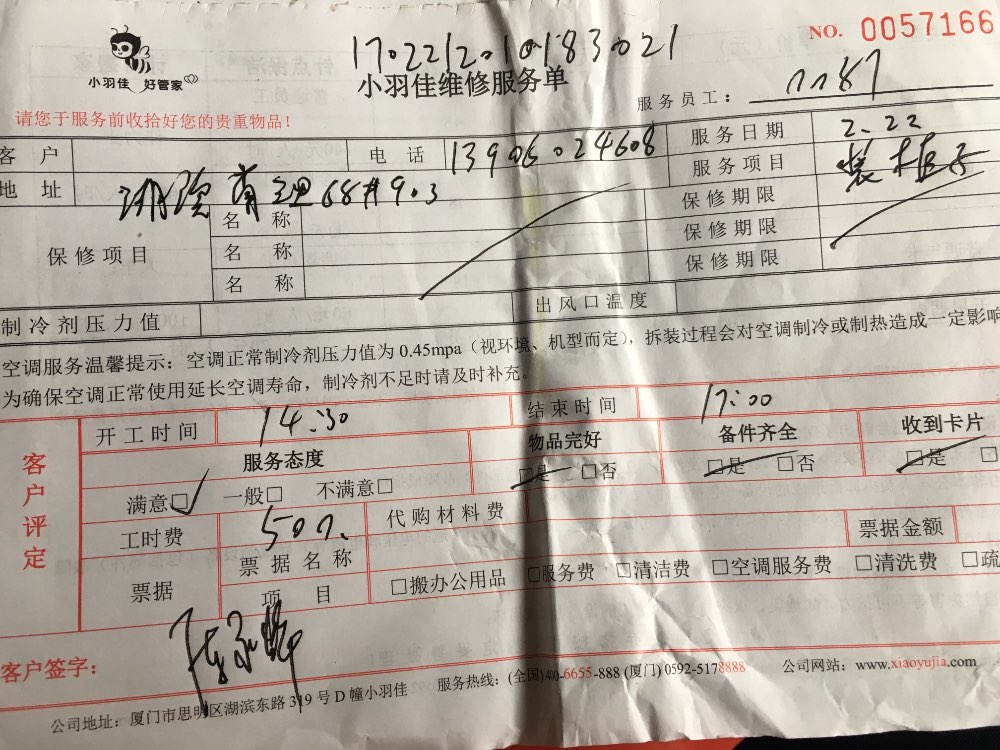 NO. 0057166
小羽佳 好管家
小羽佳维修服务单
服务员工：
请您于服务前收拾好您的贵重物品！
客户 电话 服务日期 2.22
地址 68#903 服务项目
保修项目 名称 保修期限
名称 保修期限
名称 保修期限
制冷剂压力值 出风口温度
空调服务温馨提示：空调正常制冷剂压力值为 0.45mpa（视环境、机型而定），拆装过程会对空调制冷或制热造成一定影响
为确保空调正常使用延长空调寿命，制冷剂不足时请及时补充。
客户评定
开工时间 14:30 结束时间 17:00
服务态度 物品完好 备件齐全 收到卡片
满意□ 一般□ 不满意□ □是 □否 □是 □否 □是 □
工时费 代购材料费 票据金额
票据 票据名称
项目 □搬办公用品 □服务费 □清洁费 □空调服务费 □清洗费 □疏
客户签字：
公司地址：厦门市思明区湖滨东路 319 号 D 幢小羽佳 服务热线：(全国)400-6655-888 (厦门) 0592-5178888 公司网站：www.xiaoyujia.com